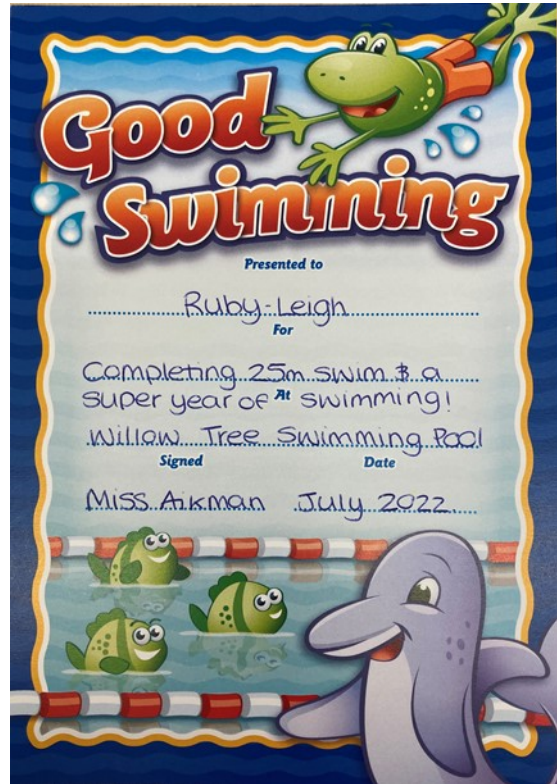 Good
Swimming
Presented to
Ruby-Leigh
For
Completing 25m swim & a
super year of swimming!
At
Willow Tree Swimming Pool
Signed Date
Miss Aikman July 2022